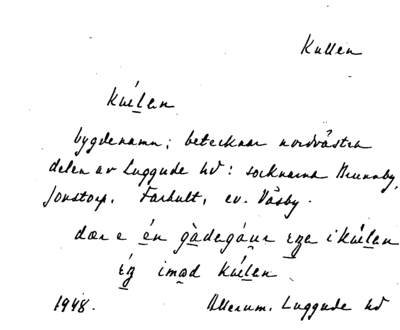 Kullen
kúlen
bygdenamn; betecknar nordvästra
delen av Luggude hd: socknarna Brunnby,
Jonstorp, Farhult, ev. Väsby.
dær e én gàdegáur i kúlen
imod kúlen
1948. Allerum. Luggude hd